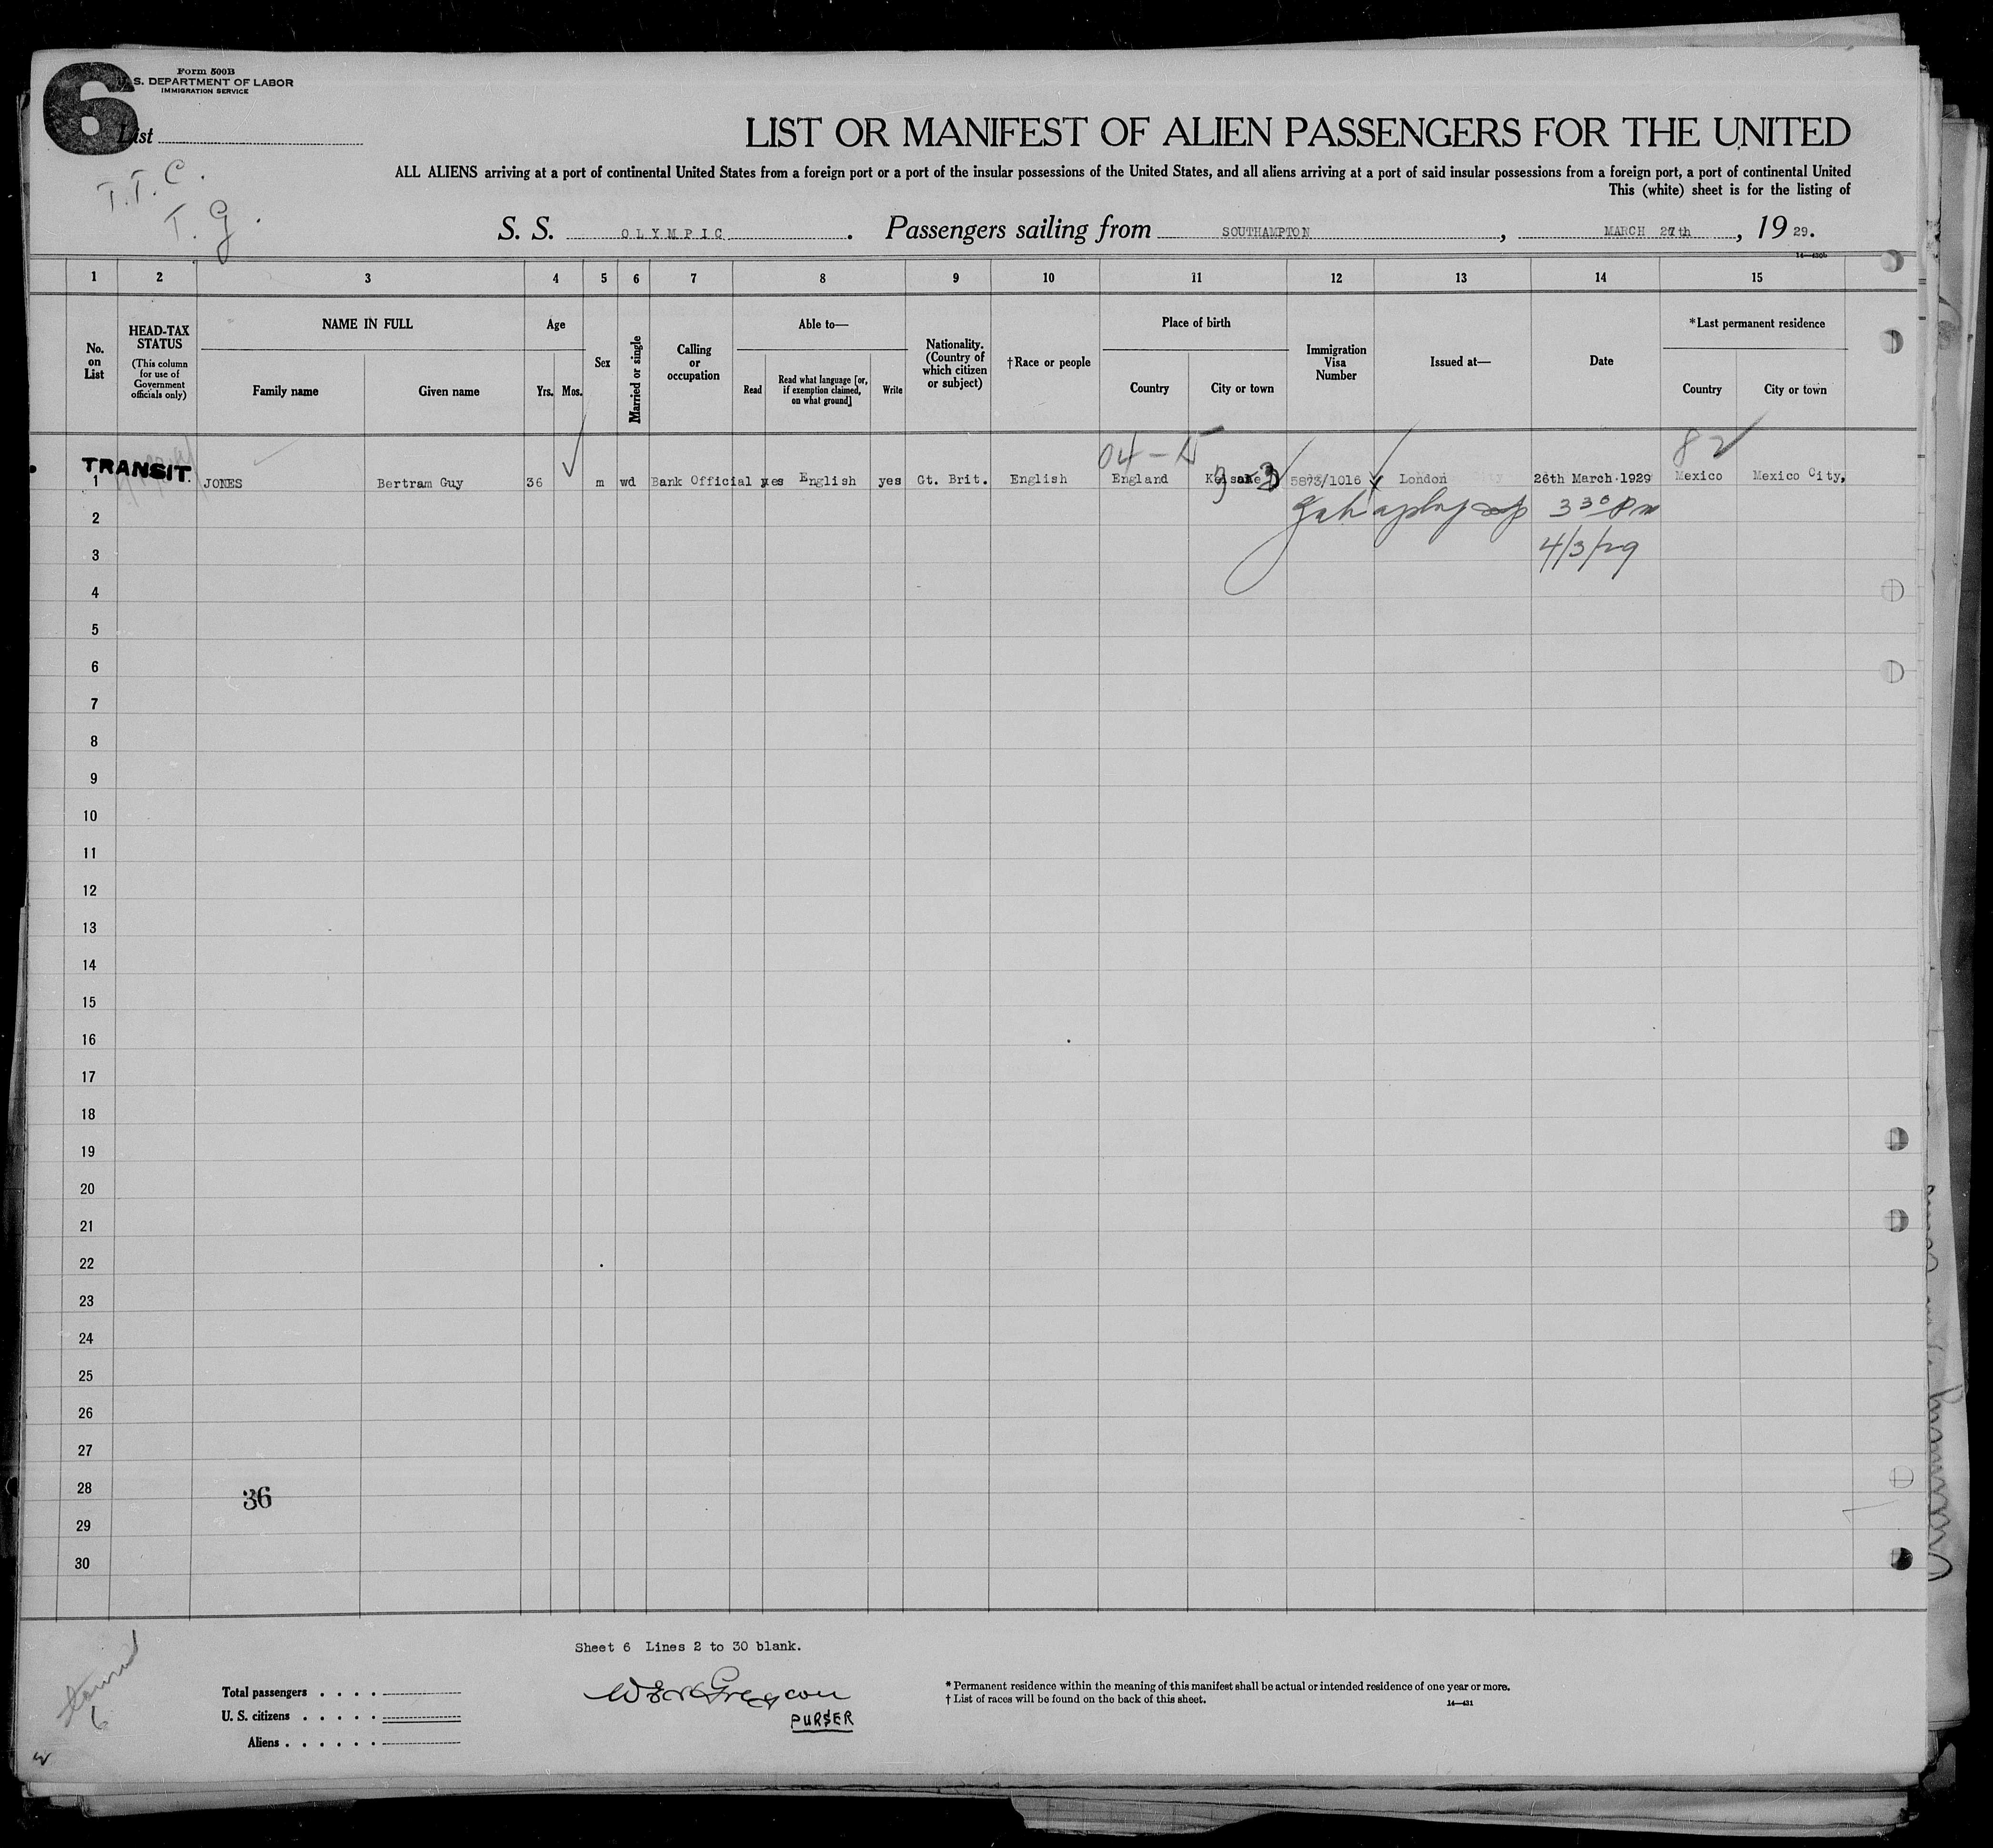 6
Form 500B
U. S. DEPARTMENT OF LABOR
IMMIGRATION SERVICE
List
T. T. C.
T. G.
LIST OR MANIFEST OF ALIEN PASSENGERS FOR THE UNITED
ALL ALIENS arriving at a port of continental United States from a foreign port or a port of the insular possessions of the United States, and all aliens arriving at a port of said insular possessions from a foreign port, a port of continental United
This (white) sheet is for the listing of
S. S. OLYMPIC . Passengers sailing from SOUTHAMPTON , MARCH 27th , 19 29.
1 2 3 4 5 6 7 8 9 10 11 12 13 14 15
No. on List
HEAD-TAX STATUS
(This column for use of Government officials only)
NAME IN FULL
Family name Given name
Age
Yrs. Mos.
Sex
Married or single
Calling or occupation
Able to—
Read
Read what language [or, if exemption claimed, on what ground]
Write
Nationality. (Country of which citizen or subject)
†Race or people
Place of birth
Country City or town
Immigration Visa Number
Issued at—
Date
*Last permanent residence
Country City or town
04 — 82
TRANSIT.
1 JONES Bertram Guy 36 m wd Bank Official yes English yes Gt. Brit. English England 5873/1016 London 26th March 1929 Mexico Mexico City,
2 3 30 Pm
3 4/3/29
4
5
6
7
8
9
10
11
12
13
14
15
16
17
18
19
20
21
22
23
24
25
26
27
28 36
29
30
Sheet 6 Lines 2 to 30 blank.
Total passengers . . . .
U. S. citizens . . . . .
Aliens . . . . . .
PURSER
* Permanent residence within the meaning of this manifest shall be actual or intended residence of one year or more.
† List of races will be found on the back of this sheet.
14—431
6